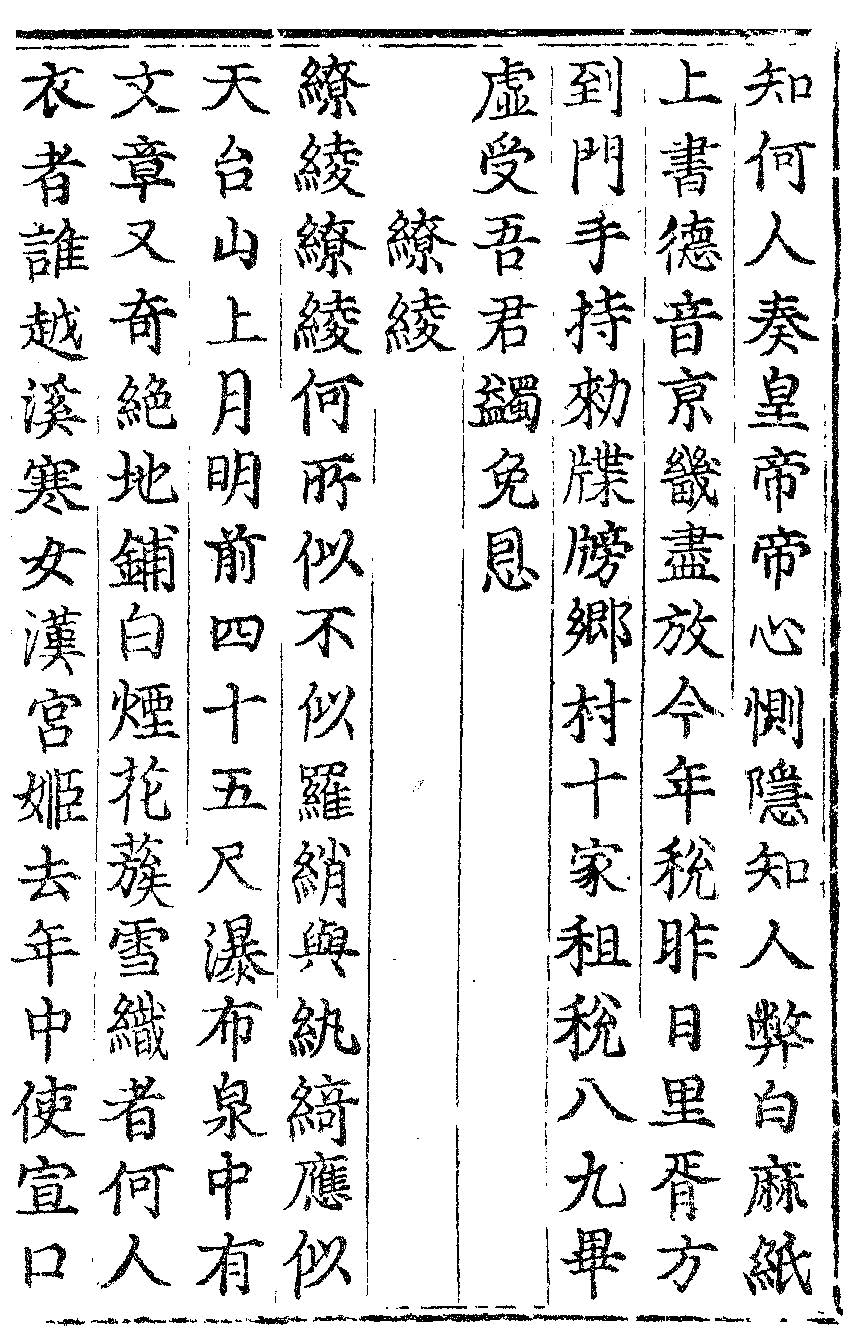 知何人奏皇帝帝心惻隱知人弊白麻紙
上書德音京畿盡放今年稅昨日里胥方
到門手持勑牒牓鄉村十家租稅八九畢
虛受吾君蠲免恩
繚綾
繚綾繚綾何所似不似羅綃與紈綺應似
天台山上月明前四十五尺瀑布泉中有
文章又奇絕地鋪白煙花蔟雪織者何人
衣者誰越溪寒女漢宮姬去年中使宣口